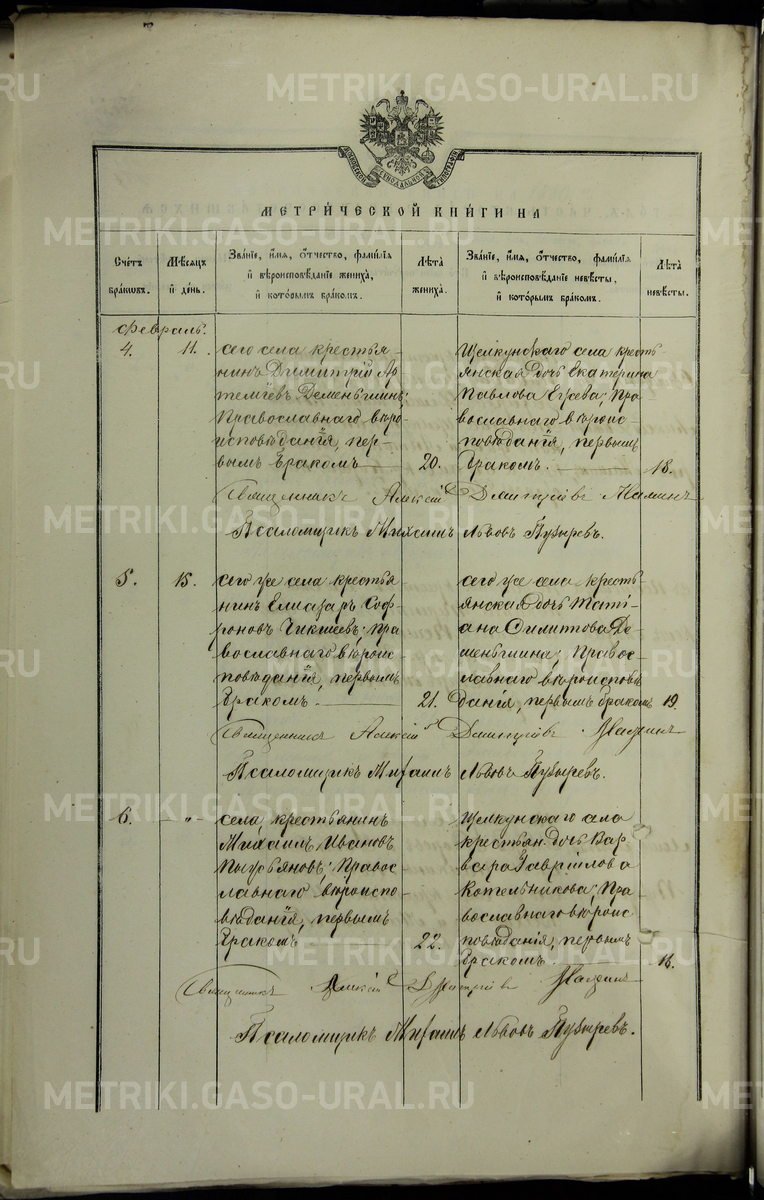 METRIKI.GASO-URAL.RU
МОСКОВСКОЙ СѴНОДАЛЬНОЙ ТИПОГРАФІИ
МЕТРИ́ЧЕСКОЙ КНИ́ГИ НА
Счетъ бра́ковъ.
Мѣсяцъ и де́нь.
Зва́нїе, и҆́мя, ѻ҆́тчество, фами́лїя и҆ вѣроисповѣ́данїе жениха̀, и҆ кото́рымъ бра́комъ.
Лѣ́та жениха̀.
Зва́нїе, и҆́мя, ѻ҆́тчество, фами́лїя и҆ вѣроисповѣ́данїе невѣ́сты, и҆ кото́рымъ бра́комъ.
Лѣ́та невѣ́сты.
Февраль.
4.
11.
сего села крестья-
нинъ Димитрій Ар
темієвъ Деменьшинъ;
Православнаго вѣро
исповѣданія, пер-
вымъ бракомъ
20.
Щелкунскаго села кресть-
янская дочь Екатерина
Павлова; Пра
вославнаго вѣроис-
повѣданія, первымъ
бракомъ.
18.
Священникъ Алексій Димитріевъ
Псаломщикъ Михаилъ Львовъ Пузыревъ.
5.
15.
сего же села крестья
нинъ Елиазаръ Соф-
роновъ; Пра
вославнаго вѣроис-
повѣданія, первымъ
бракомъ.
21.
сего же села кресть-
янская дочь Тати-
ана Де
меньшина; Правос-
лавнаго вѣроисповѣ
данія, первымъ бракомъ
19.
Священникъ Алексій Димитріевъ
Псаломщикъ Михаилъ Львовъ Пузыревъ.
6.
-"-
села, крестьянинъ
Михаилъ Ивановъ
Правос-
лавнаго вѣроиспо-
вѣданія, первымъ
бракомъ
22.
Щелкунскаго села
крестьян. дочь Вар
вара Гавріилова
Котельникова; Пра
вославнаго вѣроис
повѣданія, первымъ
бракомъ.
18.
Священникъ Алексій Димитріевъ
Псаломщикъ Михаилъ Львовъ Пузыревъ.